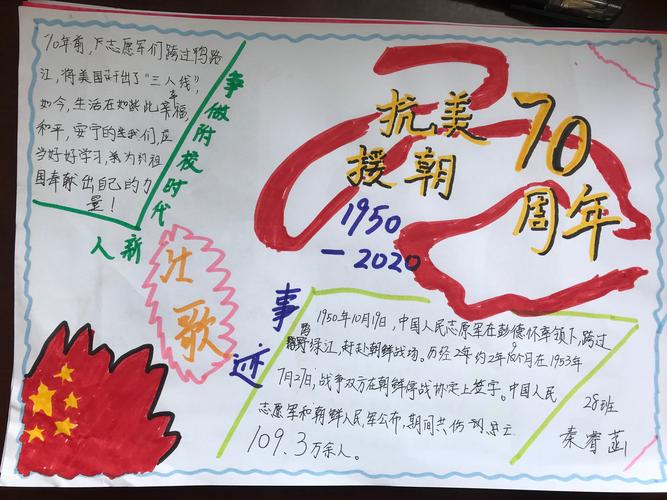 70年前，志愿军们跨过鸭路
江，将美国赶出了“三八线”，
如今，生活在如此幸福，
和平，安宁的是我们，应
当好好学习，来为祖
国奉献出自己的力
量！
争做附校时代
新人
壮歌
抗美
援朝
70
周年
1950
-2020
事迹
1950年10月19日，中国人民志愿军在彭德怀率领下，跨过
绿江，赶赴朝鲜战场。历经2年约2年9个月在1953年
7月27日，战争双方在朝鲜停战协定上签字。中国人民
志愿军和朝鲜人民军公布，期间共伤
109.3万余人。
28班
秦